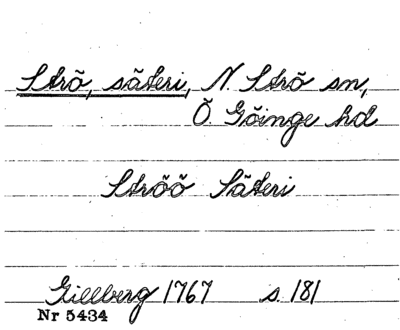 Strö, säteri, N. Strö sn,
Ö. Göinge hd
Ströö Säteri
Gillberg 1767 s. 181
Nr 5434